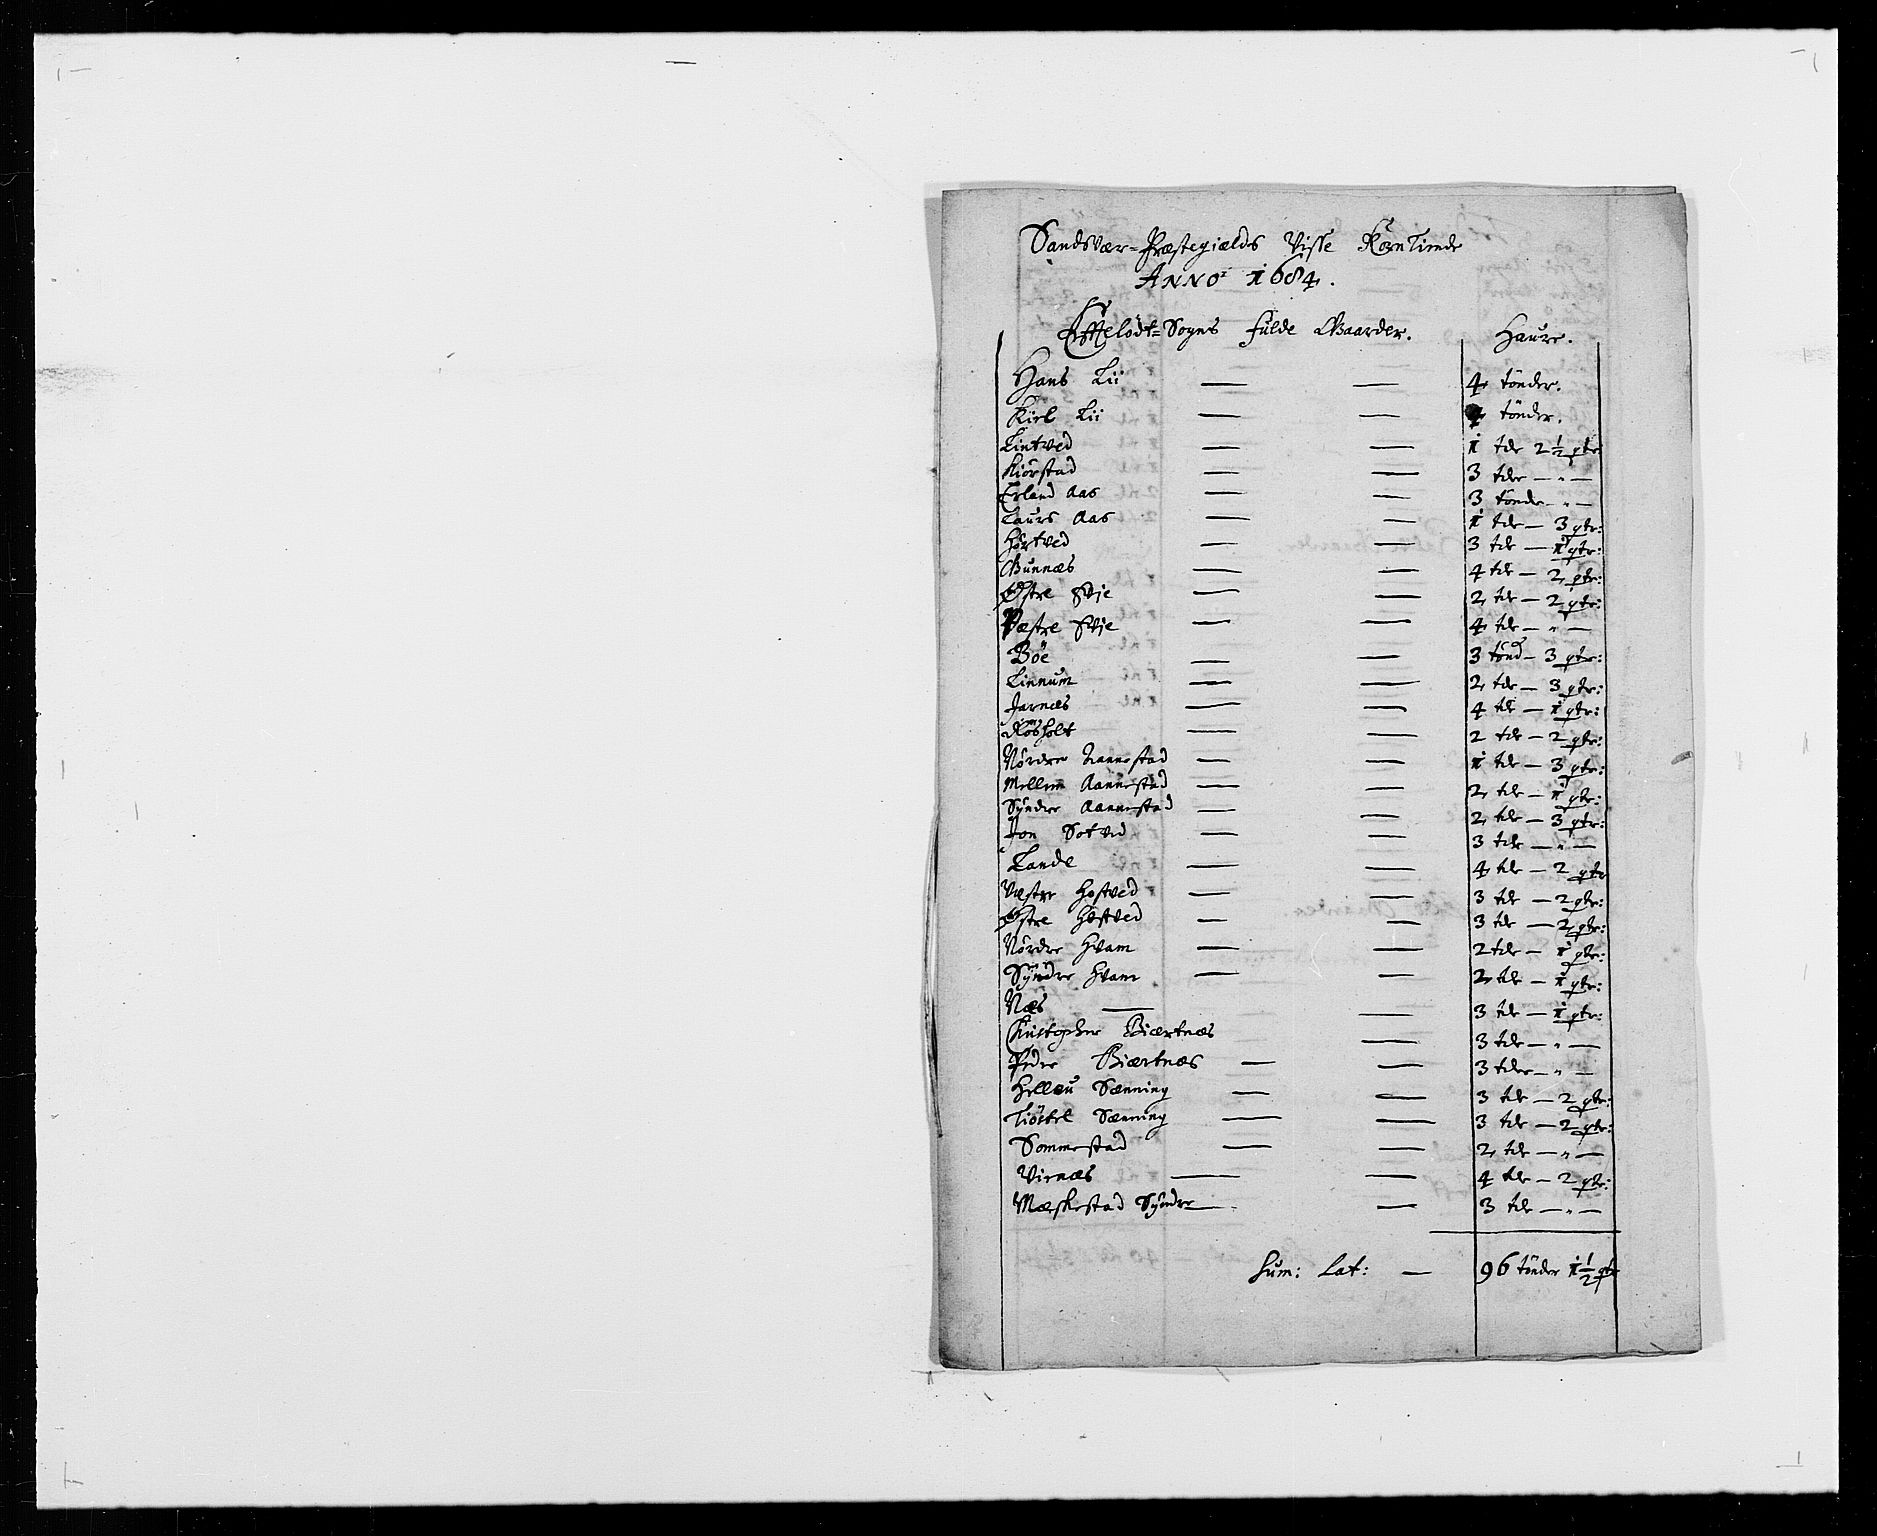 Sandsvær=Præstegiælds Visse KornTiende
ANNO 1684.
Effteløds=Sogns fulde Gaarder. Haure.
Hans Lii — — 4 tønder.
Kield Lii — — 4 tønder.
Tintved — — 1 tdr 2½ qtr
Kiørstad — — 3 tdr — " —
Erland Aas — — 3 tønder — " —
Laurs Aas — — 1 tdr — 3 qtr:
Hørtved — — 3 tdr — 1 qtr:
Gunnæs — — 4 tdr — 2 qtr:
Østre Svje — — 2 tdr — 2 qtr:
Væstre Svje — — 4 tdr — " —
Böe — — 3 tønd — 3 qtr:
Linnum — — 2 tdr — 3 qtr:
Jarnæs — — 4 tdr — 1 qtr:
Røsholt — — 2 tdr — 2 qtr:
Nørdre Aannestad — — 1 tdr — 3 qtr:
Mellem Aannestad — — 2 tdr — 1 qtr:
Syndre Aannestad — — 2 tdr — 3 qtr:
Jon Sotved — — 3 tdr — " —
Lande — — 4 tdr — 2 qtr
Væstre Hostved — — 3 tdr — 2 qtr:
Østre Hostved — — 3 tdr — 2 qtr:
Nørdre Hvam — — 2 tdr — 1 qtr:
Syndre Hvam — — 2 tdr — 1 qtr:
Næs — — 3 tdr — 1 qtr:
Christopher Biærtnæs — 3 tdr — " —
Peder Biærtnæs — — 3 tdr — " —
Helleu Sænning — — 3 tdr — 2 qtr:
Tiöstel Sænning — — 3 tdr — 2 qtr:
Sommestad — — 2 tdr — " —
Virnæs — — 4 tdr — 2 qtr:
Mærkestad Syndre — — 3 tdr — " —
Sum: Lat: — 96 tönder 1½ qtr